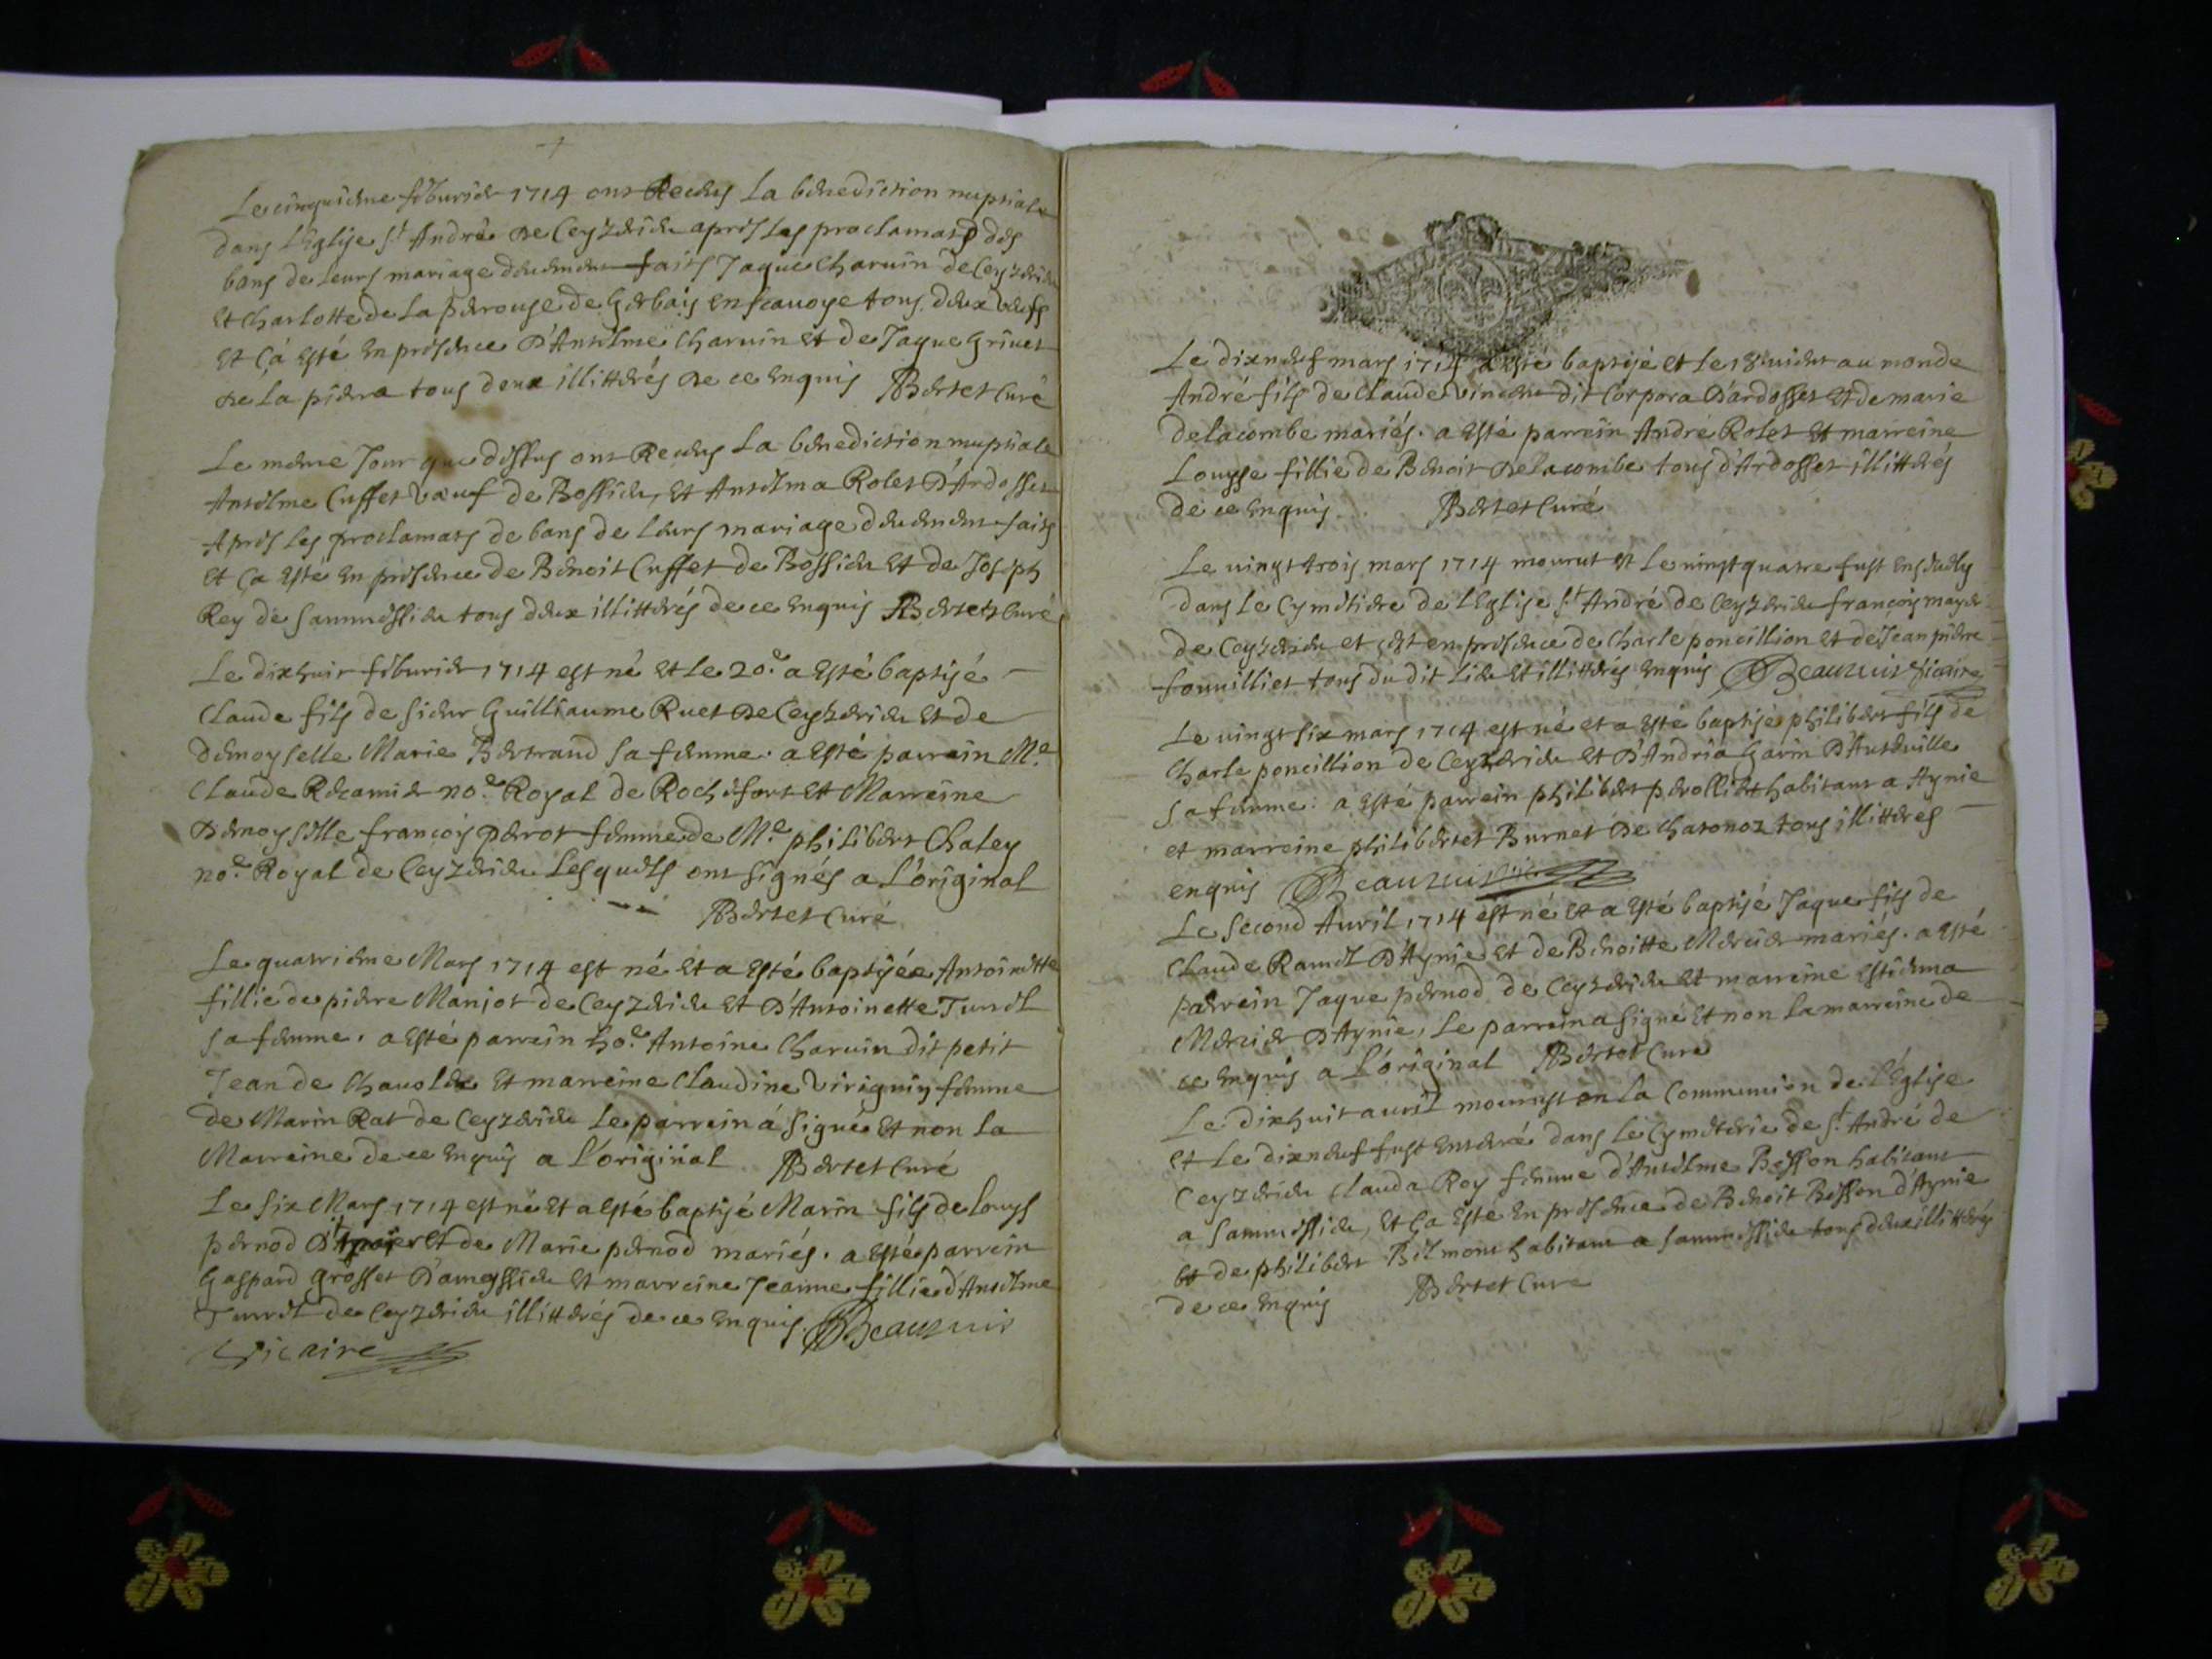 Le cinquieme feburier 1714 ont Receus la benediction nuptiale
dans l'Eglise St André de Ceyzerieu apres les proclamats des
bans de leurs mariage deuement faits Jaque Charuin de Ceyzerieu
Et Charlotte de la perouse de Gerbais en scauoye tous deux veufs
Et ça Esté En presence D'Antelme Charuin Et de Jaque Griuet
de la piera tous deux illitterés de ce Enquis Bertet Curé
Le meme Jour que dessus ont Receus La benediction nuptiale
Antelme Cuffet Vœuf de Bossieu, Et Antelma Rolet D'Ardosset
Apres les proclamats de bans de Leurs mariage deuement faits
Et ça Esté En presence de Benoit Cuffet de Bossieu Et de Joseph
Rey de Sammessieu tous deux illitterés de ce Enquis Bertet Curé
Le dixhuit feburier 1714 est né Et le 20e a Esté baptisé
Claude fils de sieur Guilliaume Ruet de Ceyzerieu Et de
demoyselle Marie Bertrand sa femme. a Esté parrein Me
Claude Recamier noe Royal de Rochefort Et Marreine
Demoyselle françois perot femme de Me philibert Chaley
noe Royal de Ceyzerieu Lesquels ont signés a L'original
Bertet Curé
Le quatrieme Mars 1714 est né Et a Esté baptisée Antoinette
fillie de pierre Manjot de Ceyzerieu Et D'Antoinette Turrel
sa femme. a Esté parrein ho.e Antoine Charuin dit petit
Jean de Chauoley Et marreine Claudine Viriguin femme
de Marin Rat de Ceyzerieu Le parrein a signé Et non la
Marreine de ce Enquis a L'original Bertet Curé
Le six Mars 1714 est né Et a Esté baptisé Marin fils de Louys
pernod Et de Marie pernod mariés. a Esté parrein
Gaspard Grosset D'ameyssieu Et marreine Jeanne fillie d'Antelme
Turrel de Ceyzerieu illitterés de ce Enquis. Beauzuir
Vicaire
Le dixneuf mars 1714 a Esté baptisé et le 18 vient au monde
André fils de Claude Vincent dit Corpora D'ardosset Et de marie
delacombe mariés. a Esté parrein André Rolet Et marreine
Louyse fillie de Benoit Delacombe tous d'Ardosset illitterés
de ce Enquis Bertet Curé
Le vingt trois mars 1714 mourut et le vingtquatre fust Enseuely
dans le Cymetiere de l'Eglise St André de Ceyzerieu françois
de Ceyzerieu et cest en presence de Charle poncillion Et de Jean pierre
fouuilliet tous du dit lieu Et illitterés Enquis Beauzuir Vicaire
Le vingt six mars 1714 est né et a Esté baptisé philibert fils de
Charle poncillion de Ceyzerieu Et D'Andria Garin D'Auteuille
sa femme: a Esté parrein philibert perollier habitant a Aynie
et marreine philibertet Burnet de Chatonoz tous illitteres
enquis Beauzuir Vic
Le second Auril 1714 est né Et a Esté baptisé Jaque fils de
Claude Ramel D'Aynie Et de Benoitte Mercier mariés. a Esté
parrein Jaque pernod de Ceyzerieu Et marreine Estiema
Mercier D'Aynie, Le parrein a signé Et non la marreine de
ce Enquis a L'original Bertet Curé
Le dixhuit auril mourust en la Communion de l'Eglise
Et Le dixneuf fust Enterré dans le Cymeterie de St André de
Ceyzerieu Clauda Rey femme d'Antelme Besson habitant
a Sammessieu, Et ça Esté En presence de Benoit Besson d'Aynie
Et de philibert Belmont habitant a Sammessieu tous deux illitterés
de ce Enquis Bertet Curé